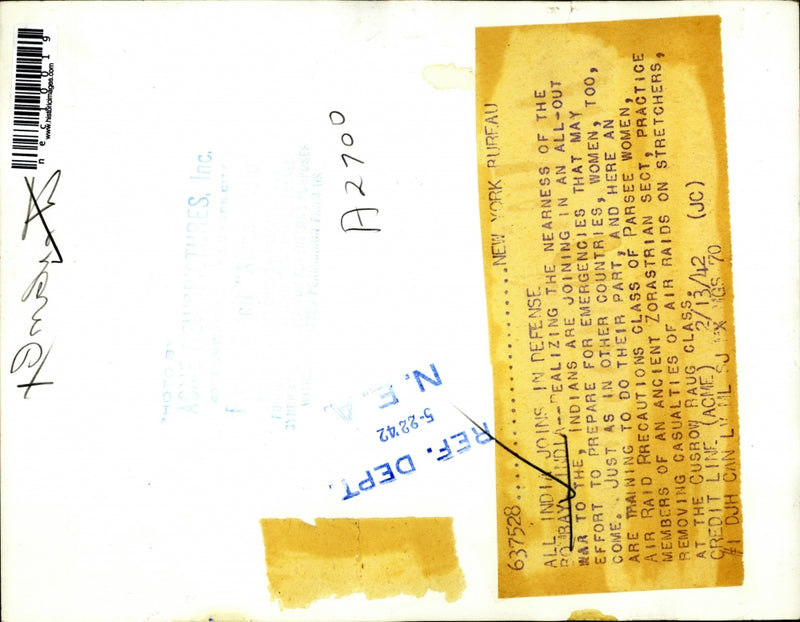 637528.....................NEW YORK BUREAU
ALL INDIA JOINS IN DEFENSE
BOMBAY, INDIA--REALIZING THE NEARNESS OF THE
WAR TO THE, INDIANS ARE JOINING IN AN ALL-OUT
EFFORT TO PREPARE FOR EMERGENCIES THAT MAY
COME. JUST AS IN OTHER COUNTRIES, WOMEN, TOO,
ARE TRAINING TO DO THEIR PART, AND HERE AN
AIR RAID PRECAUTIONS CLASS OF PARSEE WOMEN,
MEMBERS OF AN ANCIENT ZORASTRIAN SECT, PRACTICE
REMOVING CASUALTIES OF AIR RAIDS ON STRETCHERS,
AT THE CUSROW RAUG CLASS.
CREDIT LINE (ACME) 2/13/42 (JC)
#1 DJH CAN LV ML SJ MGS 70
A2700
PHOTO BY
ACME NEWSPICTURES, Inc.
N. E. A.
5-22'42
REF. DEPT.
nec10019
www.historicimages.com